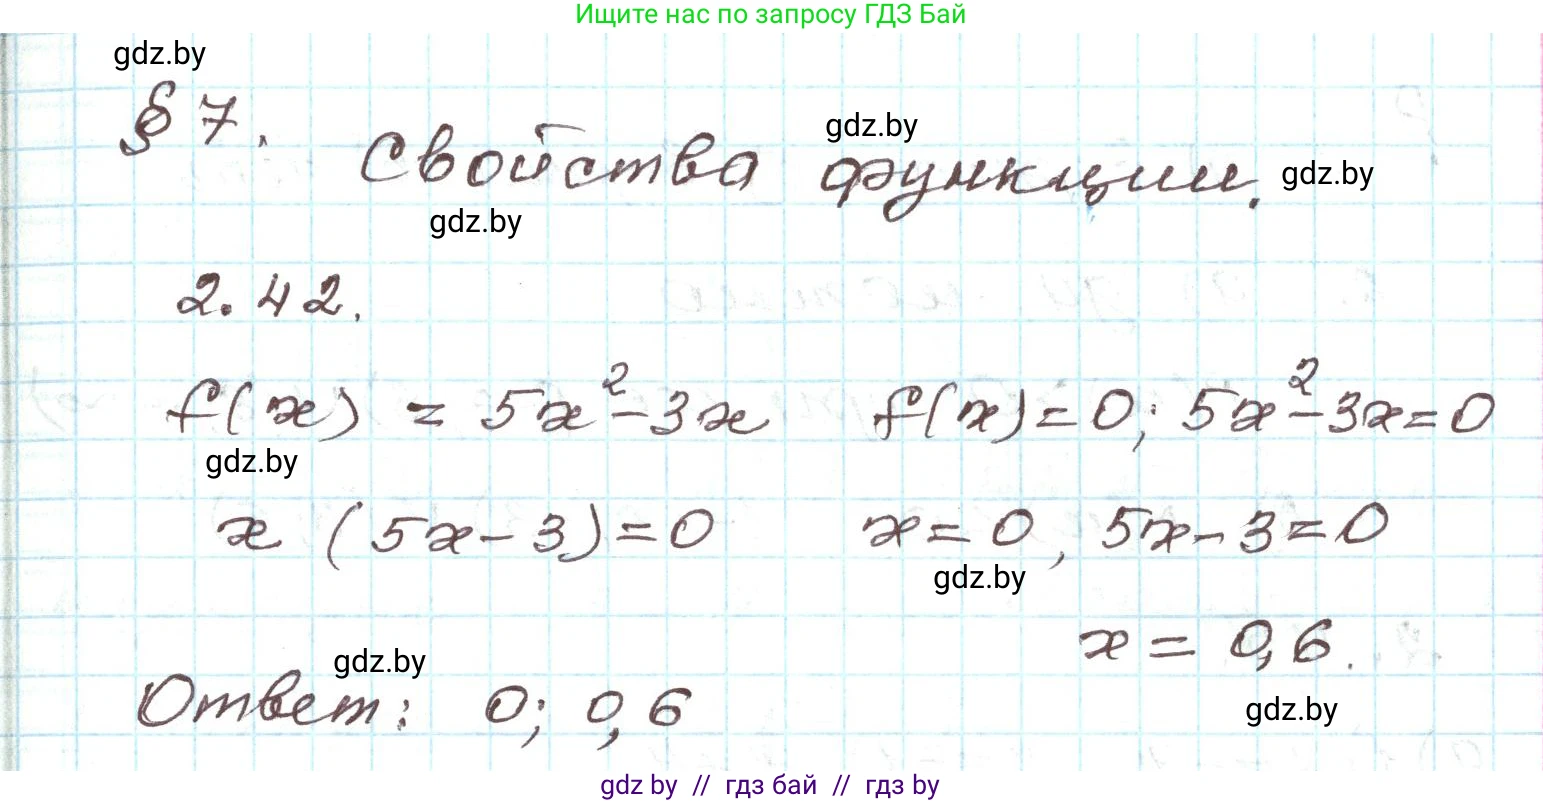 Ищите нас по запросу ГДЗ Бай
gdz.by
§ 7.
gdz.by
Свойства функции.
gdz.by
gdz.by
2.42.
f(x) = 5x²-3x f(x)=0; 5x²-3x=0
gdz.by
x (5x-3)=0 x=0, 5x-3=0
gdz.by
x = 0,6.
gdz.by
Ответ: 0; 0,6
gdz.by
gdz by // гдз бай // гдз by